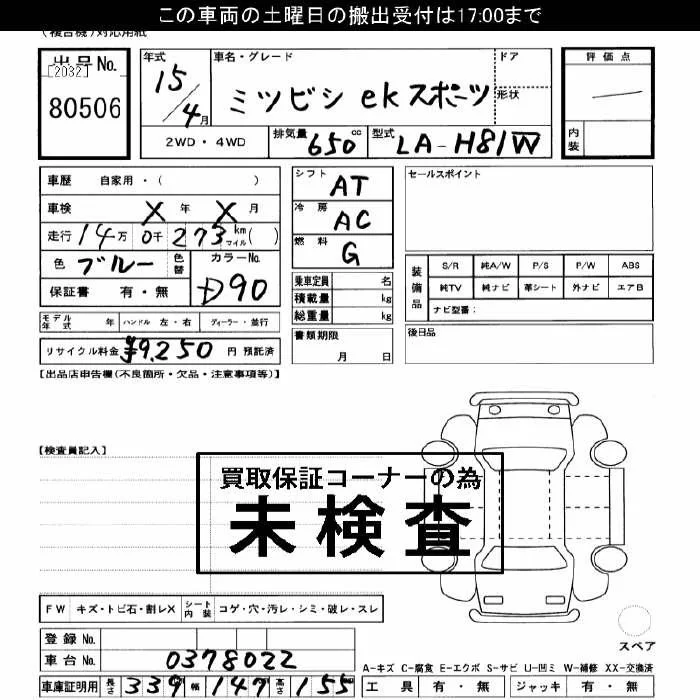 この車両の土曜日の搬出受付は17:00まで
(複合機)対応用紙
出品No.
[2032]
80506
年式
15/4月
車名・グレード
ミツビシ ekスポーツ
ドア
形状
評価点
内装
2WD・4WD
排気量 650 cc
型式 LA-H81W
車歴 自家用・( )
車検 X 年 X 月
走行 14万 0千 273 km マイル( )
色 ブルー
色替
カラーNo.
D90
保証書 有・無
シフト AT
冷房 AC
燃料 G
乗車定員 名
積載量 kg
総重量 kg
書類期限
月 日
セールスポイント
装備品
S/R 純A/W P/S P/W ABS
純TV 純ナビ 革シート 外ナビ エアB
ナビ型番:
後日品
モデル年式 年 ハンドル 左・右 ディーラー・並行
リサイクル料金 ¥9,250 円 預託済
【出品店申告欄(不良箇所・欠品・注意事項等)】
【検査員記入】
買取保証コーナーの為
未検査
FW キズ・トビ石・割レX シート内装 コゲ・穴・汚レ・シミ・破レ・スレ
登録 No.
車台 No. 0378022
車庫証明用 長さ 339 幅 147 高さ 155
スペア
A-キズ C-腐食 E-エクボ S-サビ U-凹ミ W-補修 XX-交換済
工具 有・無 ジャッキ 有・無